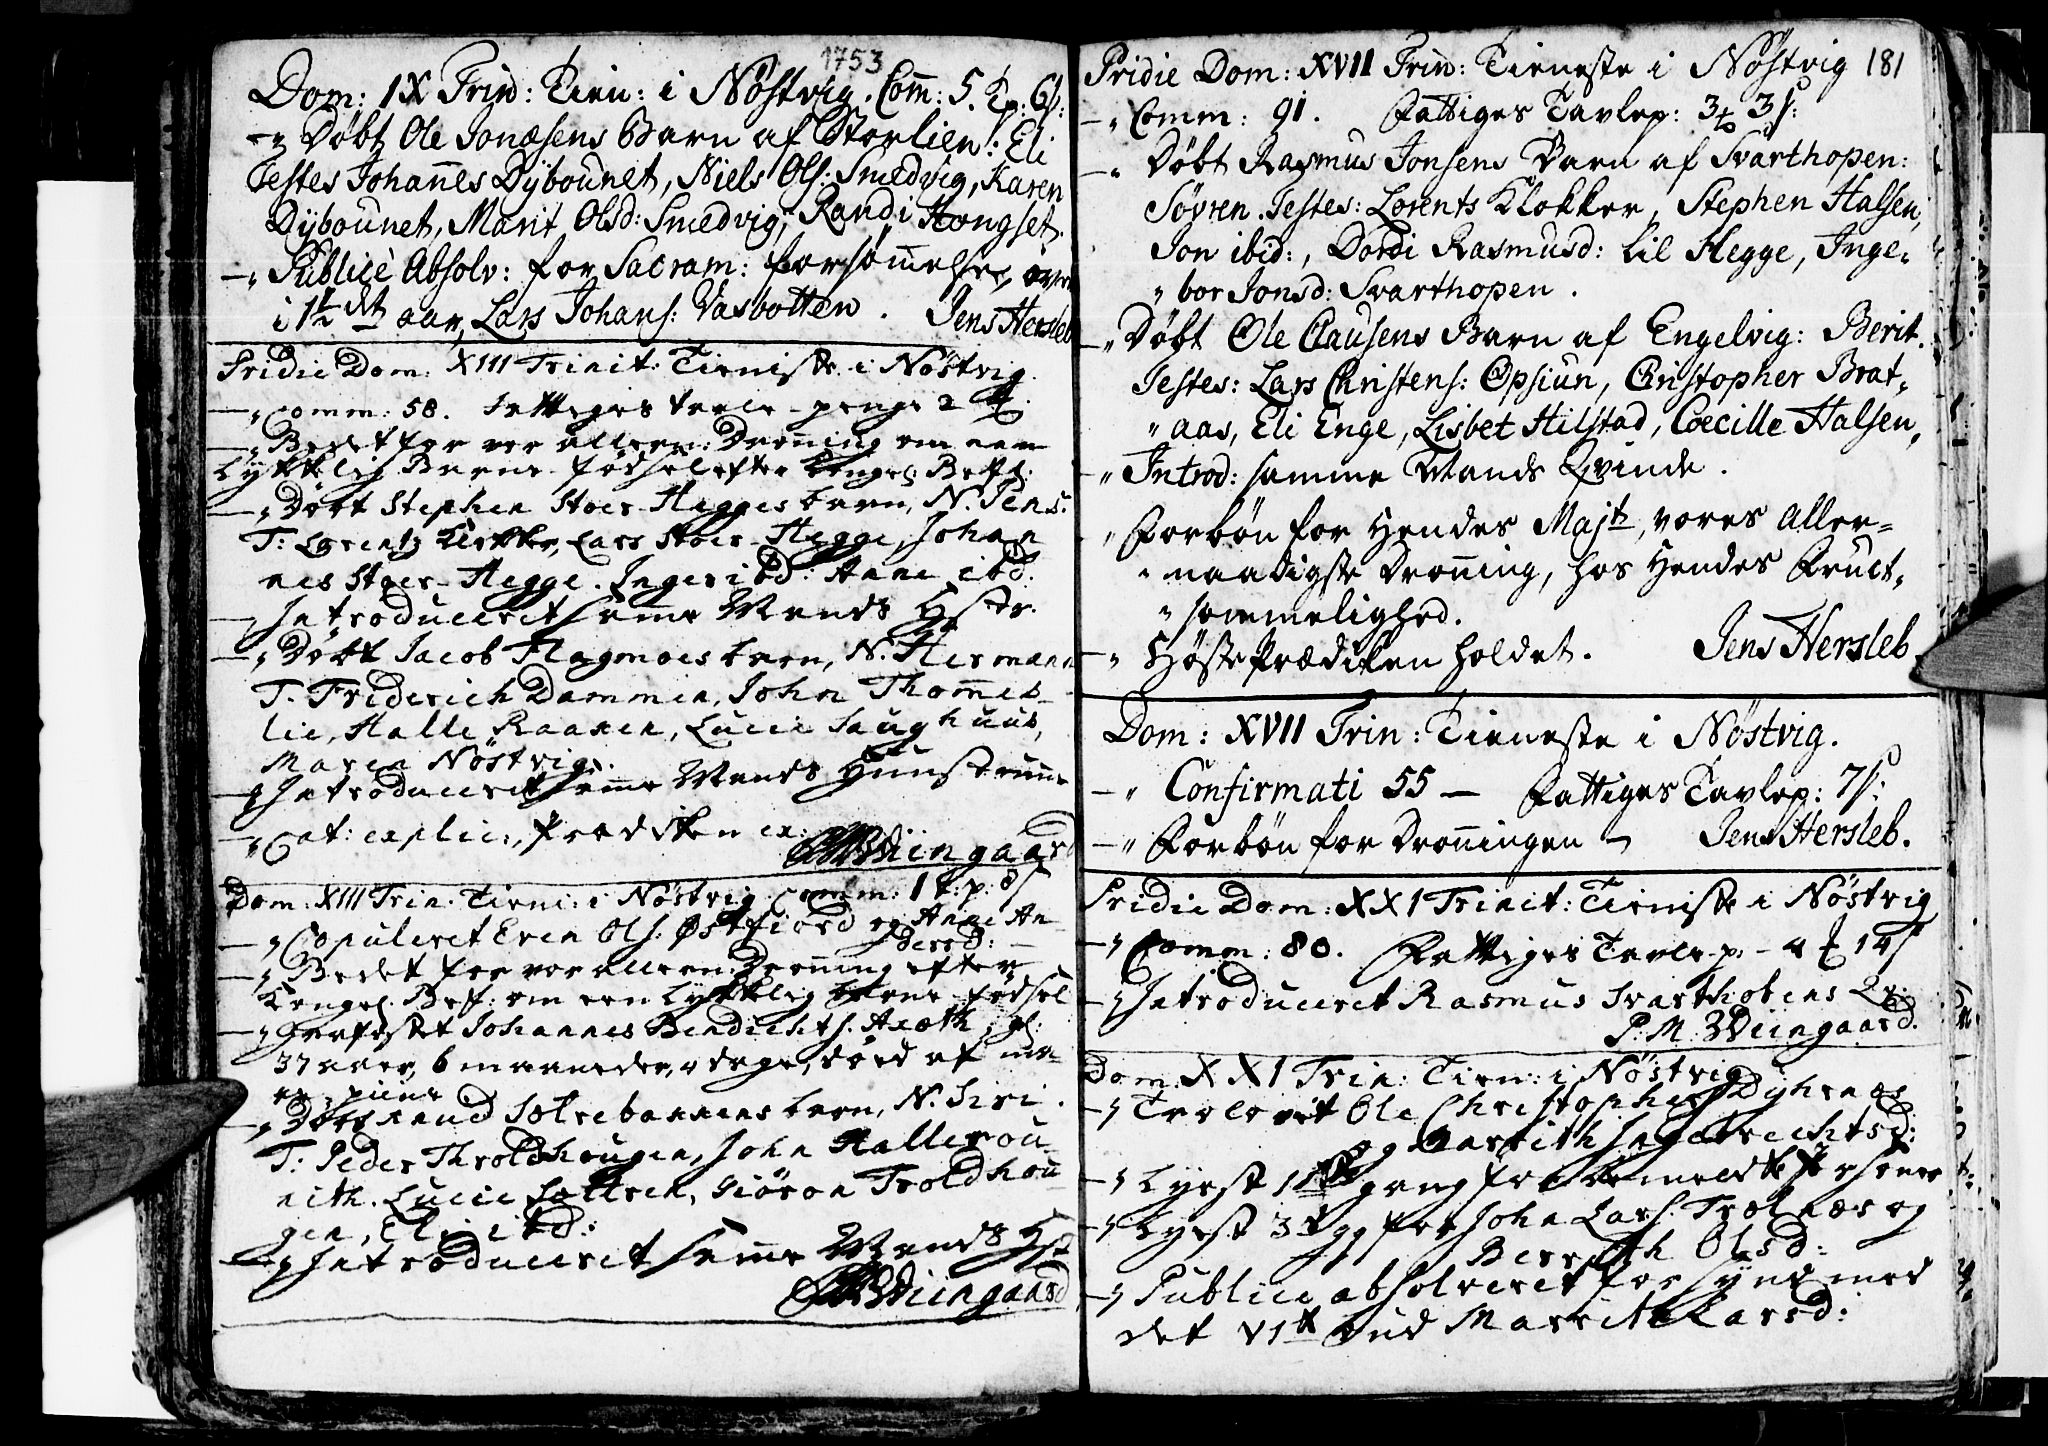 1753
Dom: IX Trin: Tien: i Nöstvig. Com̃: 5. Tp: 6 s:
Döbt Ole Jonæsens Barn af Storlien: Eli
Testes Johan̄es Dÿbounet, Niels Ols: Smedvig, Karen
Dÿbounet, Marit Olsd: Smedvig, Randi Hongset.
Publicè Absolv: for Sacram: forsöm̄elser over
i 1½ aar, Lars Johans: Vasbotten. Jens Hersleb
Pridie Dom: XIII Trinit: Tieniste i Nöstvig.
Comm: 58. Fattiges tavle-penge 2
Bedet for vor allern: Dron̄ing om een
Lykkelig Barne-födsel efter Kongel: Bef:
Döbt Stephen Stoer-Hegges barn, N. Jens.
T: Lorentz Klokker, Lars Stoer-Hegge, Johan
nes Stoer-Hegge. Inger ibd: Anne ibd:
Introduceret sam̄e Mands Hstr.
Döbt Jacob Hagmoes barn, N. Herman
T. Friderich Dammen, John Thom̄es-
lie, Halle Raanen, Lucie Saughuus,
Maren Nöstvig.
Introduceret sam̄e Mands Hunstrue
Cat: explic:, Prædiken ex:
Wiingaard
Dom: XIII Trin: Tieni: i Nöstvig Comm: 1 t:p: 8 s
Copuleret Even Ols: Østfiord og Anne An
dersd:
Bedet for vor allern: Dron̄ing efter
Kongel: Bef: om een Lykkelig barne-födsel
Jordfæstet Johannes Bendichts: Axeth, gl:
37 aar, 6 maaneder, 4 dage, död af
Döbt Knud Solsebannens barn, N. Siri.
T: Peder Throldhougen, John Hallerou-
nith. Lucie Lottsen, Giöron Troldhou
gen, Eli ibd:
Introduceret sam̄e Mands Hst
Wiingaard
Pridie Dom: XVII Trin: Tieneste i Nöstvig 181
Comm: 91. Fattiges Tavlep: 3 3 s:
Döbt Rasmus Jonsens Barn af Svarthopen:
Sövren. Testes: Lorents Klokker, Stephen Halsen,
Jon ibid:, Dordi Rasmusd: Lil Hegge, Inge-
bor Jonsd: Svarthopen.
Döbt Ole Clausens Barn af Engelvig: Berit.
Testes: Lars Christens: Opsiun, Christopher Brat-
aas, Eli Enge, Lisbet Hilstad, Cæcille Halsen,
Introd: samme Mands Qvinde.
Forbön for Hendes Majt, vores Aller-
naadigste Dron̄ing, hos Hendes Fruct-
sommelighed.
HöstePrædiken holdet. Jens Hersleb
Dom: XVII Trin: Tieneste i Nöstvig.
Confirmati 55 — Fattiges Tavlep: 7 s:
Forbön for Dron̄ingen — Jens Hersleb.
Pridie Dom: XXI Trinit: Tieniste i Nöstvig
Comm: 80. Fattiges Tavle-p: - 4 14 s
Introduceret Rasmus Svarthobens Qv:
P: M: Wiingaard.
Dom XXI Trin: Tien: i Nöstvig
Trolovit Ole Christophers Dyhrnes
og Marrith Ingebrechtsd:
Lyest 1ste gang for bemelte Personer
Lyest 3d gg for John Lars: Trolnæs og
Berrith Olsd:
Publice absolveret for synd mod
det VIte bud Marrite Larsd: